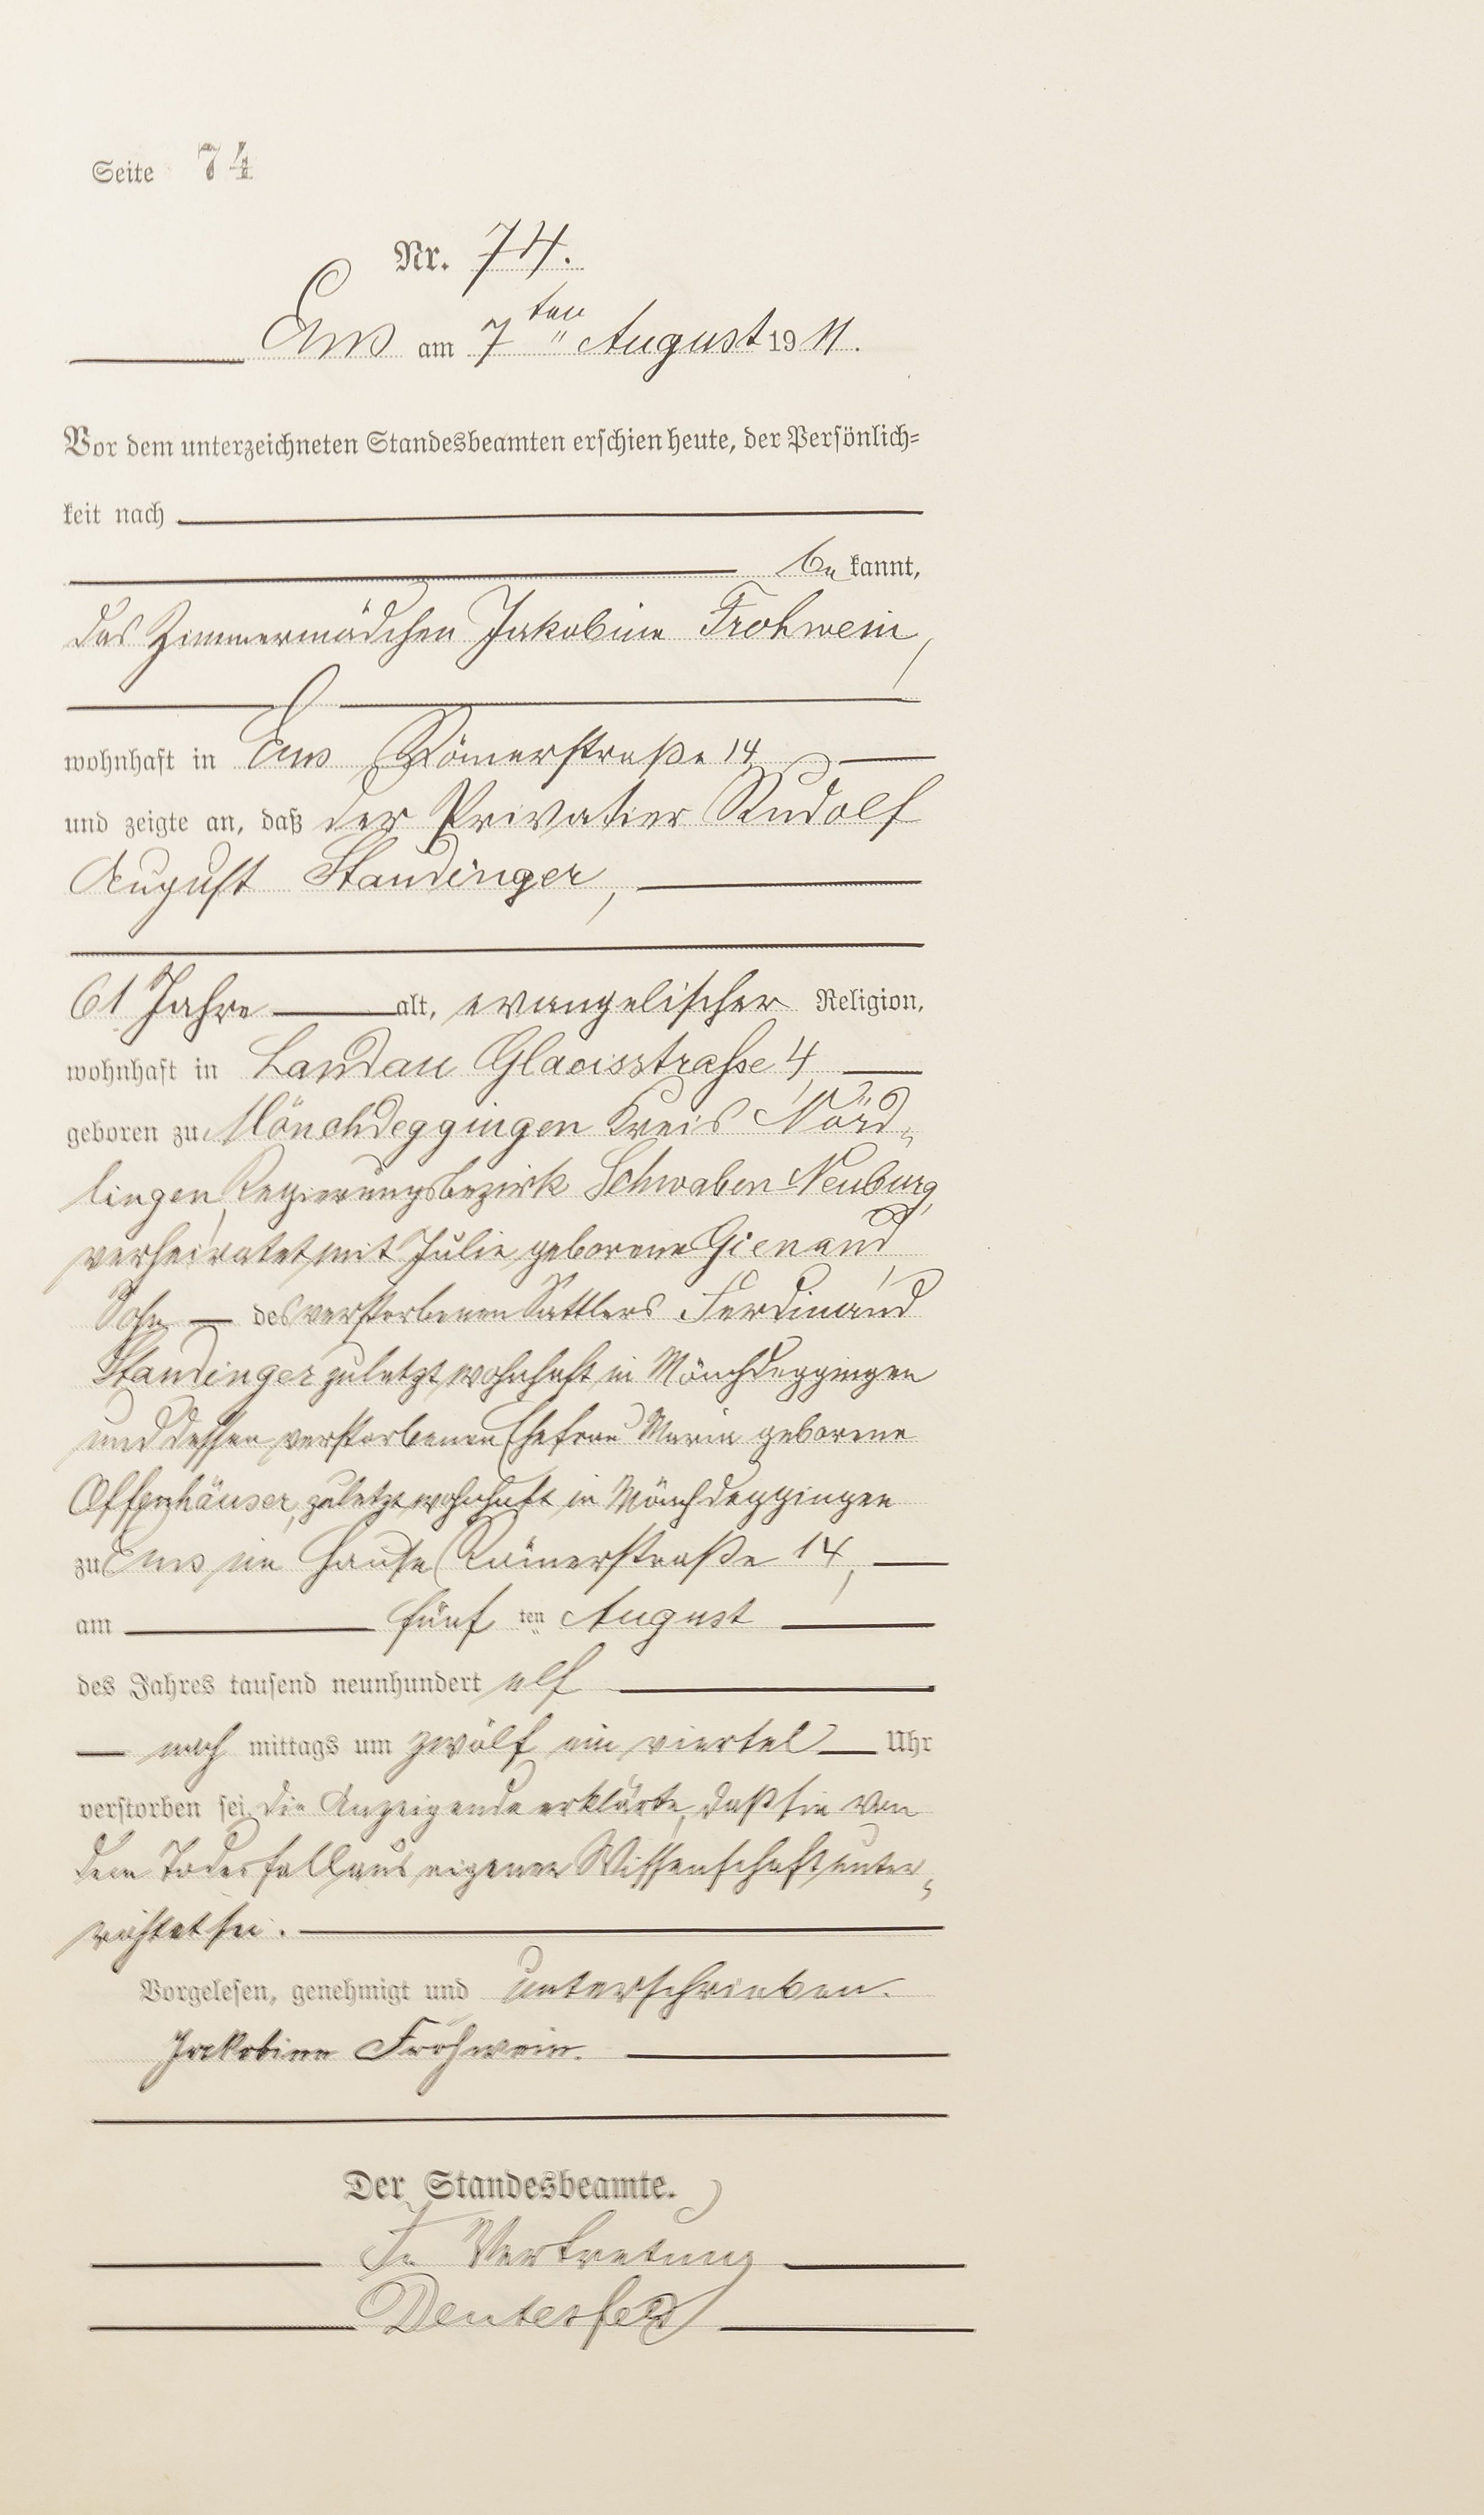 Seite 74
Nr. 74.
Ems am 7ten August 1911.
Vor dem unterzeichneten Standesbeamten erschien heute, der Persönlich-
keit nach
bekannt,
das Zimmermädchen Jakobine Frohwein,
wohnhaft in Ems Römerstraße 14
und zeigte an, daß der Privatier Rudolf
August Staudinger,
61 Jahre alt, evangelischer Religion,
wohnhaft in Landau Glacisstraße 4,
geboren zu Mönchdeggingen Kreis Nörd-
lingen, Regierungsbezirk Schwaben Neuburg,
verheiratet mit Julie geborene Gienand
Sohn des verstorbenen Sattlers Ferdinand
Staudinger zuletzt wohnhaft in Mönchdeggingen
und dessen verstorbenen Ehefrau Maria geborene
Offenhäuser, zuletzt wohnhaft in Mönchdeggingen
zu Ems im Hause Römerstraße 14,
am fünften August
des Jahres tausend neunhundert elf
nachmittags um zwölf ein viertel Uhr
verstorben sei. Die Anzeigende erklärte, daß sie von
dem Todesfall aus eigener Wissenschaft unter-
richtet sei.
Vorgelesen, genehmigt und unterschrieben.
Jakobine Frohwein.
Der Standesbeamte.
In Vertretung
Deutesfeld